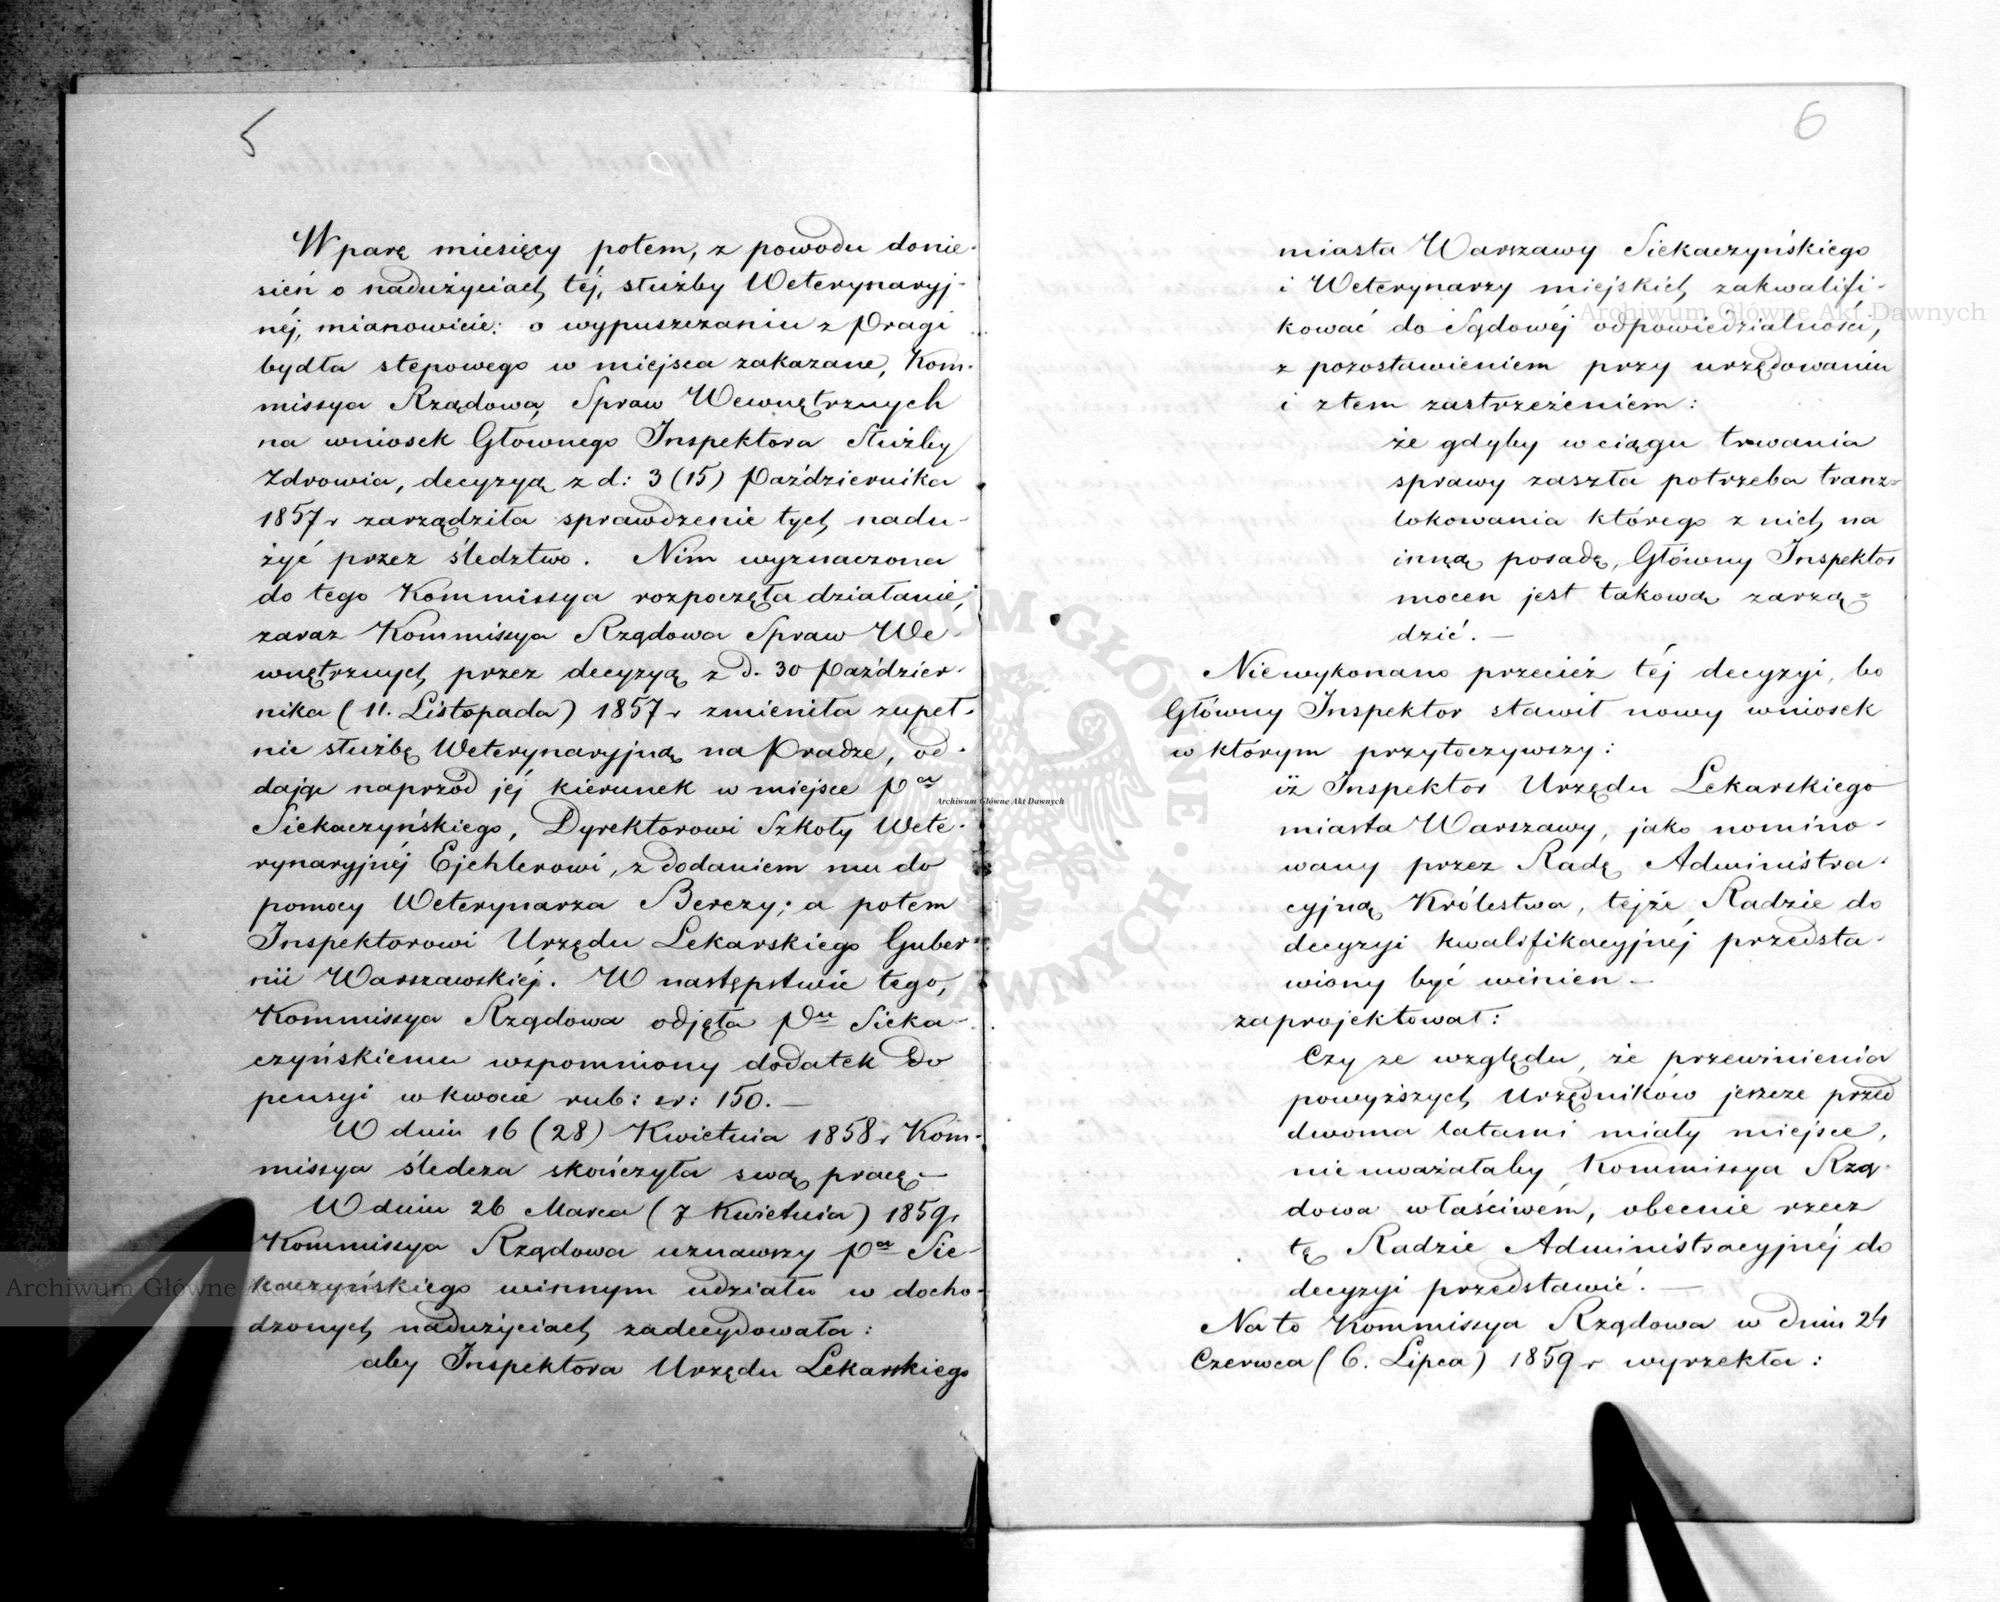 5
W parę miesięcy potem, z powodu donie-
sień o nadużyciach téj, służby Weterynaryj-
néj, mianowicie: o wypuszczaniu z Pragi
bydła stepowego w miejsca zakazane, Kom-
missya Rządowa Spraw Wewnętrznych
na wniosek Głównego Inspektora Służby
Zdrowia, decyzyą z d: 3 (15) Października
1857 r zarządziła sprawdzenie tych nadu-
żyć przez śledztwo. Nim wyznaczona
do tego Kommissya rozpoczęła działanie,
zaraz Kommissya Rządowa Spraw We-
wnętrznych przez decyzyą z d. 30 Paździer-
nika (11. Listopada) 1857 r zmieniła zupeł-
nie służbę Weterynaryjną na Pradze, od-
dając naprzód jéj kierunek w miejsce Pa
Siekaczyńskiego, Dyrektorowi Szkoły Wete-
rynaryjnéj Ejchlerowi, z dodaniem mu do
pomocy Weterynarza Berezy; a potem
Inspektorowi Urzędu Lekarskiego Guber
nii Warszawskiéj. W następstwie tego,
Kommissya Rządowa odjęła Pu Sieka-
czyńskiemu wspomniony dodatek do
pensyi w kwocie rub: sr: 150. —
W dniu 16 (28) Kwietnia 1858 r Kom-
missya śledcza skończyła swą pracę —
W dniu 26 Marca (7 Kwietnia) 1859 r
Kommissya Rządowa uznawszy Pa Sie-
kaczyńskiego winnym udziału w docho-
dzonych nadużyciach zadecydowała:
aby Inspektora Urzędu Lekarskiego
6
miasta Warszawy Siekaczyńskiego
i Weterynarzy miejskich zakwalifi-
kować do Sądowéj odpowiedzialności,
z pozostawieniem przy urzędowaniu
i z tem zastrzeżeniem:
że gdyby w ciągu trwania
sprawy zaszła potrzeba tranz-
lokowania którego z nich na
inną posadę, Główny Inspektor
mocen jest takową zarzą-
dzić. —
Niewykonano przecież téj decyzyi, bo
Główny Inspektor stawił nowy wniosek
w którym przytoczywszy:
iż Inspektor Urzędu Lekarskiego
miasta Warszawy, jako nomino-
wany przez Radę Administra-
cyjną Królestwa, tejże Radzie do
decyzyi kwalifikacyjnéj przedsta-
wiony być winien —
zaprojektował:
Czy ze względu, że przewinienia
powyższych Urzędników jeszcze przed
dwoma latami miały miejsce,
nie uważałaby Kommissya Rzą-
dowa właściwém, obecnie rzecz
tę Radzie Administracyjnéj do
decyzyi przedstawić. —
Na to Kommissya Rządowa w dniu 24
Czerwca (6. Lipca) 1859 r wyrzekła:
Archiwum Główne Akt Dawnych
Archiwum Główne Akt Dawnych
Archiwum Główne